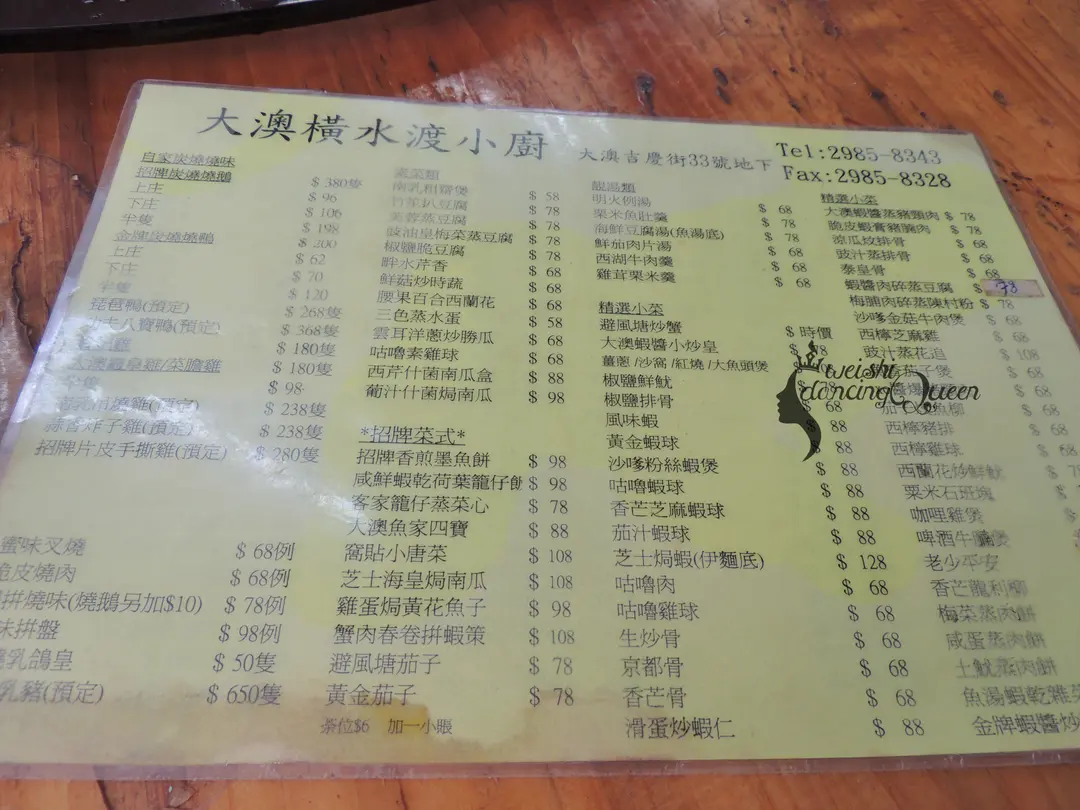 大澳橫水渡小廚
大澳吉慶街33號地下
Tel:2985-8343
Fax:2985-8328
自家炭燒燒味
招牌炭燒燒鵝 $ 380隻
上庄 $ 96
下庄 $ 106
半隻 $ 198
金牌炭燒燒鴨 $ 200
上庄 $ 62
下庄 $ 70
半隻 $ 120
琵琶鴨(預定) $ 268隻
八寶鴨(預定) $ 368隻
$ 180隻
$ 180隻
半隻 $ 98
$ 238隻
蒜香炸子雞(預定) $ 238隻
招牌片皮手撕雞(預定) $ 280隻
蜜味叉燒 $ 68例
脆皮燒肉 $ 68例
拼燒味(燒鵝另加$10) $ 78例
味拼盤 $ 98例
乳鴿皇 $ 50隻
乳豬(預定) $ 650隻
素菜類
南乳粗齋煲 $ 58
竹笙扒豆腐 $ 78
芙蓉蒸豆腐 $ 78
豉油皇梅菜蒸豆腐 $ 78
椒鹽脆豆腐 $ 68
畔水芹香 $ 68
鮮菇炒時蔬 $ 68
腰果百合西蘭花 $ 68
三色蒸水蛋 $ 58
雲耳洋蔥炒勝瓜 $ 68
咕嚕素雞球 $ 68
西芹什菌南瓜盒 $ 88
葡汁什菌焗南瓜 $ 98
*招牌菜式*
招牌香煎墨魚餅 $ 98
咸鮮蝦乾荷葉籠仔飯 $ 98
客家籠仔蒸菜心 $ 78
大澳魚家四寶 $ 88
窩貼小唐菜 $ 108
芝士海皇焗南瓜 $ 108
雞蛋焗黃花魚子 $ 98
蟹肉春卷拼蝦策 $ 108
避風塘茄子 $ 78
黃金茄子 $ 78
茶位$6 加一小賬
靚湯類
明火例湯 $ 68
栗米魚肚羹 $ 78
海鮮豆腐湯(魚湯底) $ 78
鮮茄肉片湯 $ 68
西湖牛肉羹 $ 68
雞茸栗米羹 $ 68
精選小菜
避風塘炒蟹 $ 時價
大澳蝦醬小炒皇
薑蔥/沙窩/紅燒/大魚頭煲
椒鹽鮮魷
椒鹽排骨 68
風味蝦 88
黃金蝦球 $ 88
沙嗲粉絲蝦煲 $ 88
咕嚕蝦球 $ 88
香芒芝麻蝦球 $ 88
茄汁蝦球 $ 88
芝士焗蝦(伊麵底) $ 128
咕嚕肉 $ 68
咕嚕雞球 $ 68
生炒骨 $ 68
京都骨 $ 68
香芒骨 $ 68
滑蛋炒蝦仁 $ 88
精選小菜
大澳蝦醬蒸豬頸肉 $ 78
脆皮蝦膏豬腩肉 $ 78
涼瓜炆排骨 $ 68
豉汁蒸排骨 $ 68
秦皇骨 $ 68
蝦醬肉碎蒸豆腐 $ 78
梅腩肉碎蒸陳村粉 $ 78
沙嗲金菇牛肉煲 $ 68
西檸芝麻雞 $ 68
豉汁蒸花边 $ 108
茄子煲 $ 68
$ 68
$ 68
西檸豬排 $ 68
西檸雞球 $ 68
西蘭花炒鮮魷
粟米石班塊
咖哩雞煲
啤酒牛腩煲
老少平安
香芒龍利柳
梅菜蒸肉餅
咸蛋蒸肉餅
土魷蒸肉餅
魚湯蝦乾雜菜
金牌蝦醬炒
weishi
dancing Queen